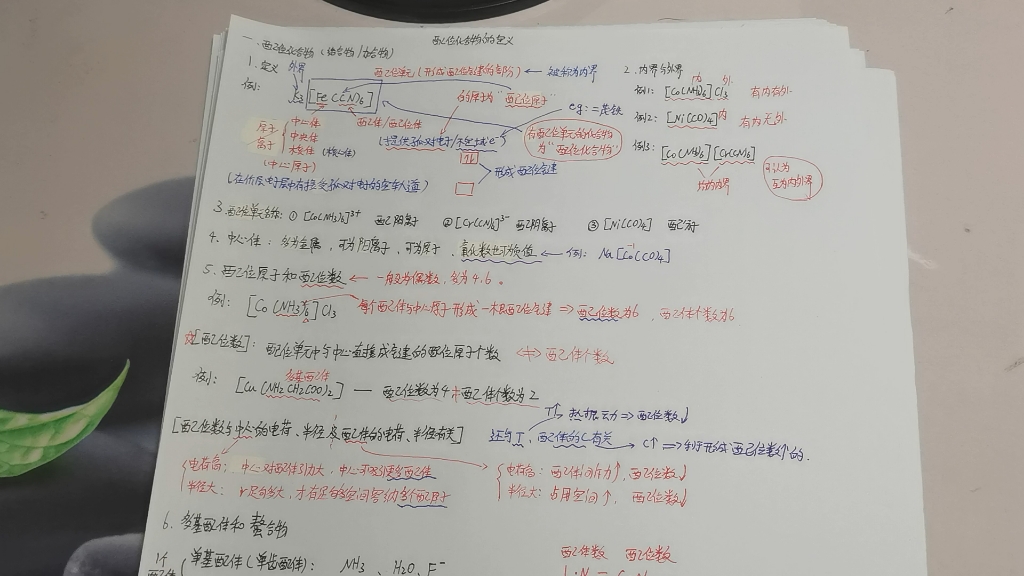 配位化合物的定义
一、配位化合物（络合物/加合物）
1.定义 外界
配位单元（形成配位键的部分）← 被称为内界
例: K3[Fe(CN)6]
的原子为"配位原子"
eg:二茂铁
原子 离子 中心体 中央体 核体（核心体）
（中心原子）
配体/配位体
（提供孤对电子/不定域e⁻）
含配位单元的化合物为"配位化合物"
形成配位键
（在价层电子层中有接受孤对电子的空轨道）
2.内界与外界
内 外
例1: [Co(NH3)6]Cl3 有内有外
例2: [Ni(CO)4]内 有内无外
例3: [Co(NH3)6][Cr(CN)6]
均为内界
可认为互为内外界
3.配位单元名称: ① [Co(NH3)6]³⁺ 配阳离子 ② [Cr(CN)6]³⁻ 配阴离子 ③ [Ni(CO)4] 配分子
4.中心体: 多为金属，可为阳离子，可为原子，氧化数也可为负值 ← 例: Na[Co(CO)4]
5.配位原子和配位数 ← 一般为偶数，多为4.6。
例: [Co(NH3)6]Cl3 每个配体与中心原子形成一根配位键 ⇒ 配位数为6，配体个数为6
[配位数]: 配位单元中与中心直接成键的配位原子个数 配体个数
多基配体
例: [Cu(NH2CH2COO)2] — 配位数为4 配体个数为2
T↑热振动⇒配位数↓
[配位数与中心的电荷、半径及配体的电荷、半径有关] 还与T、配体的C有关 → C↑⇒利于形成配位数↑的.
电荷高: 中心对配体引力大，中心 多配体
半径大: r足够大，才有足够空间容纳多个配原子
电荷高: 配体间斥力↑，配位数↓
半径大: 占用空间↑，配位数↓
6.多基配体和螯合物
单基配体（单齿配体）: NH3、H2O、F⁻
配体数 配位数